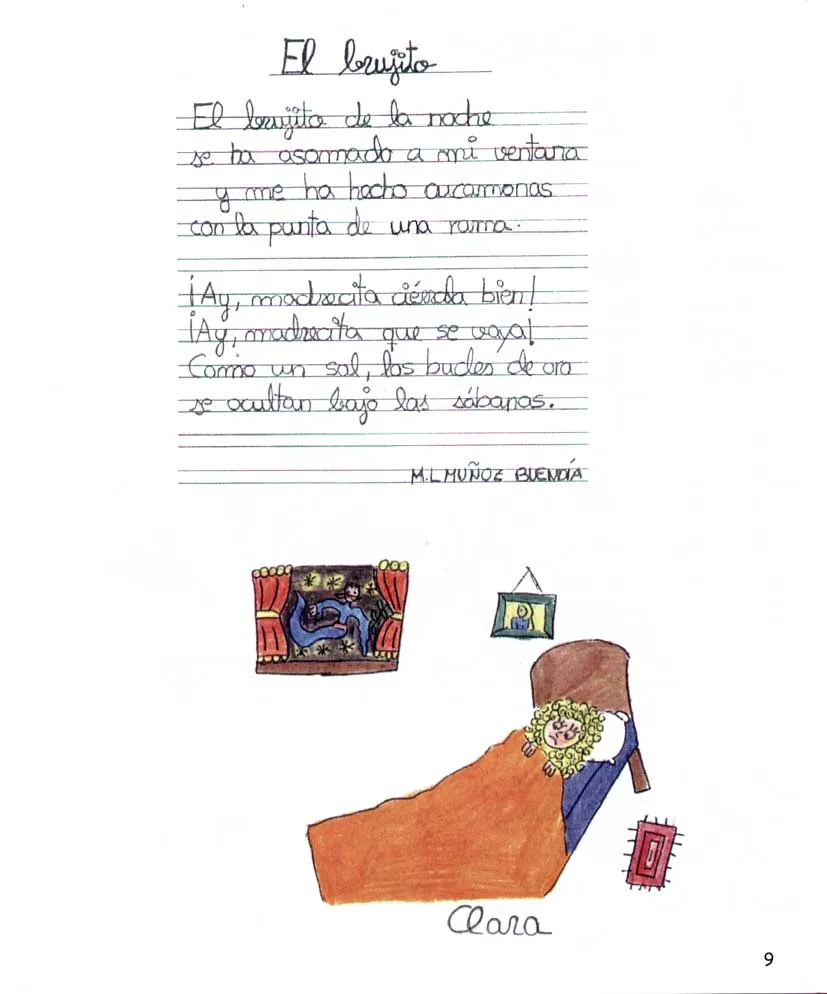 El brujito
El brujito de la noche
se ha asomado a mi ventana
y me ha hecho cucamonas
con la punta de una rama.
¡Ay, madrecita ciérrala bien!
¡Ay, madrecita que se vaya¡
Como un sol, los bucles de oro
se ocultan bajo las sábanas.
M.L MUÑOZ BUENDÍA
Clara
9